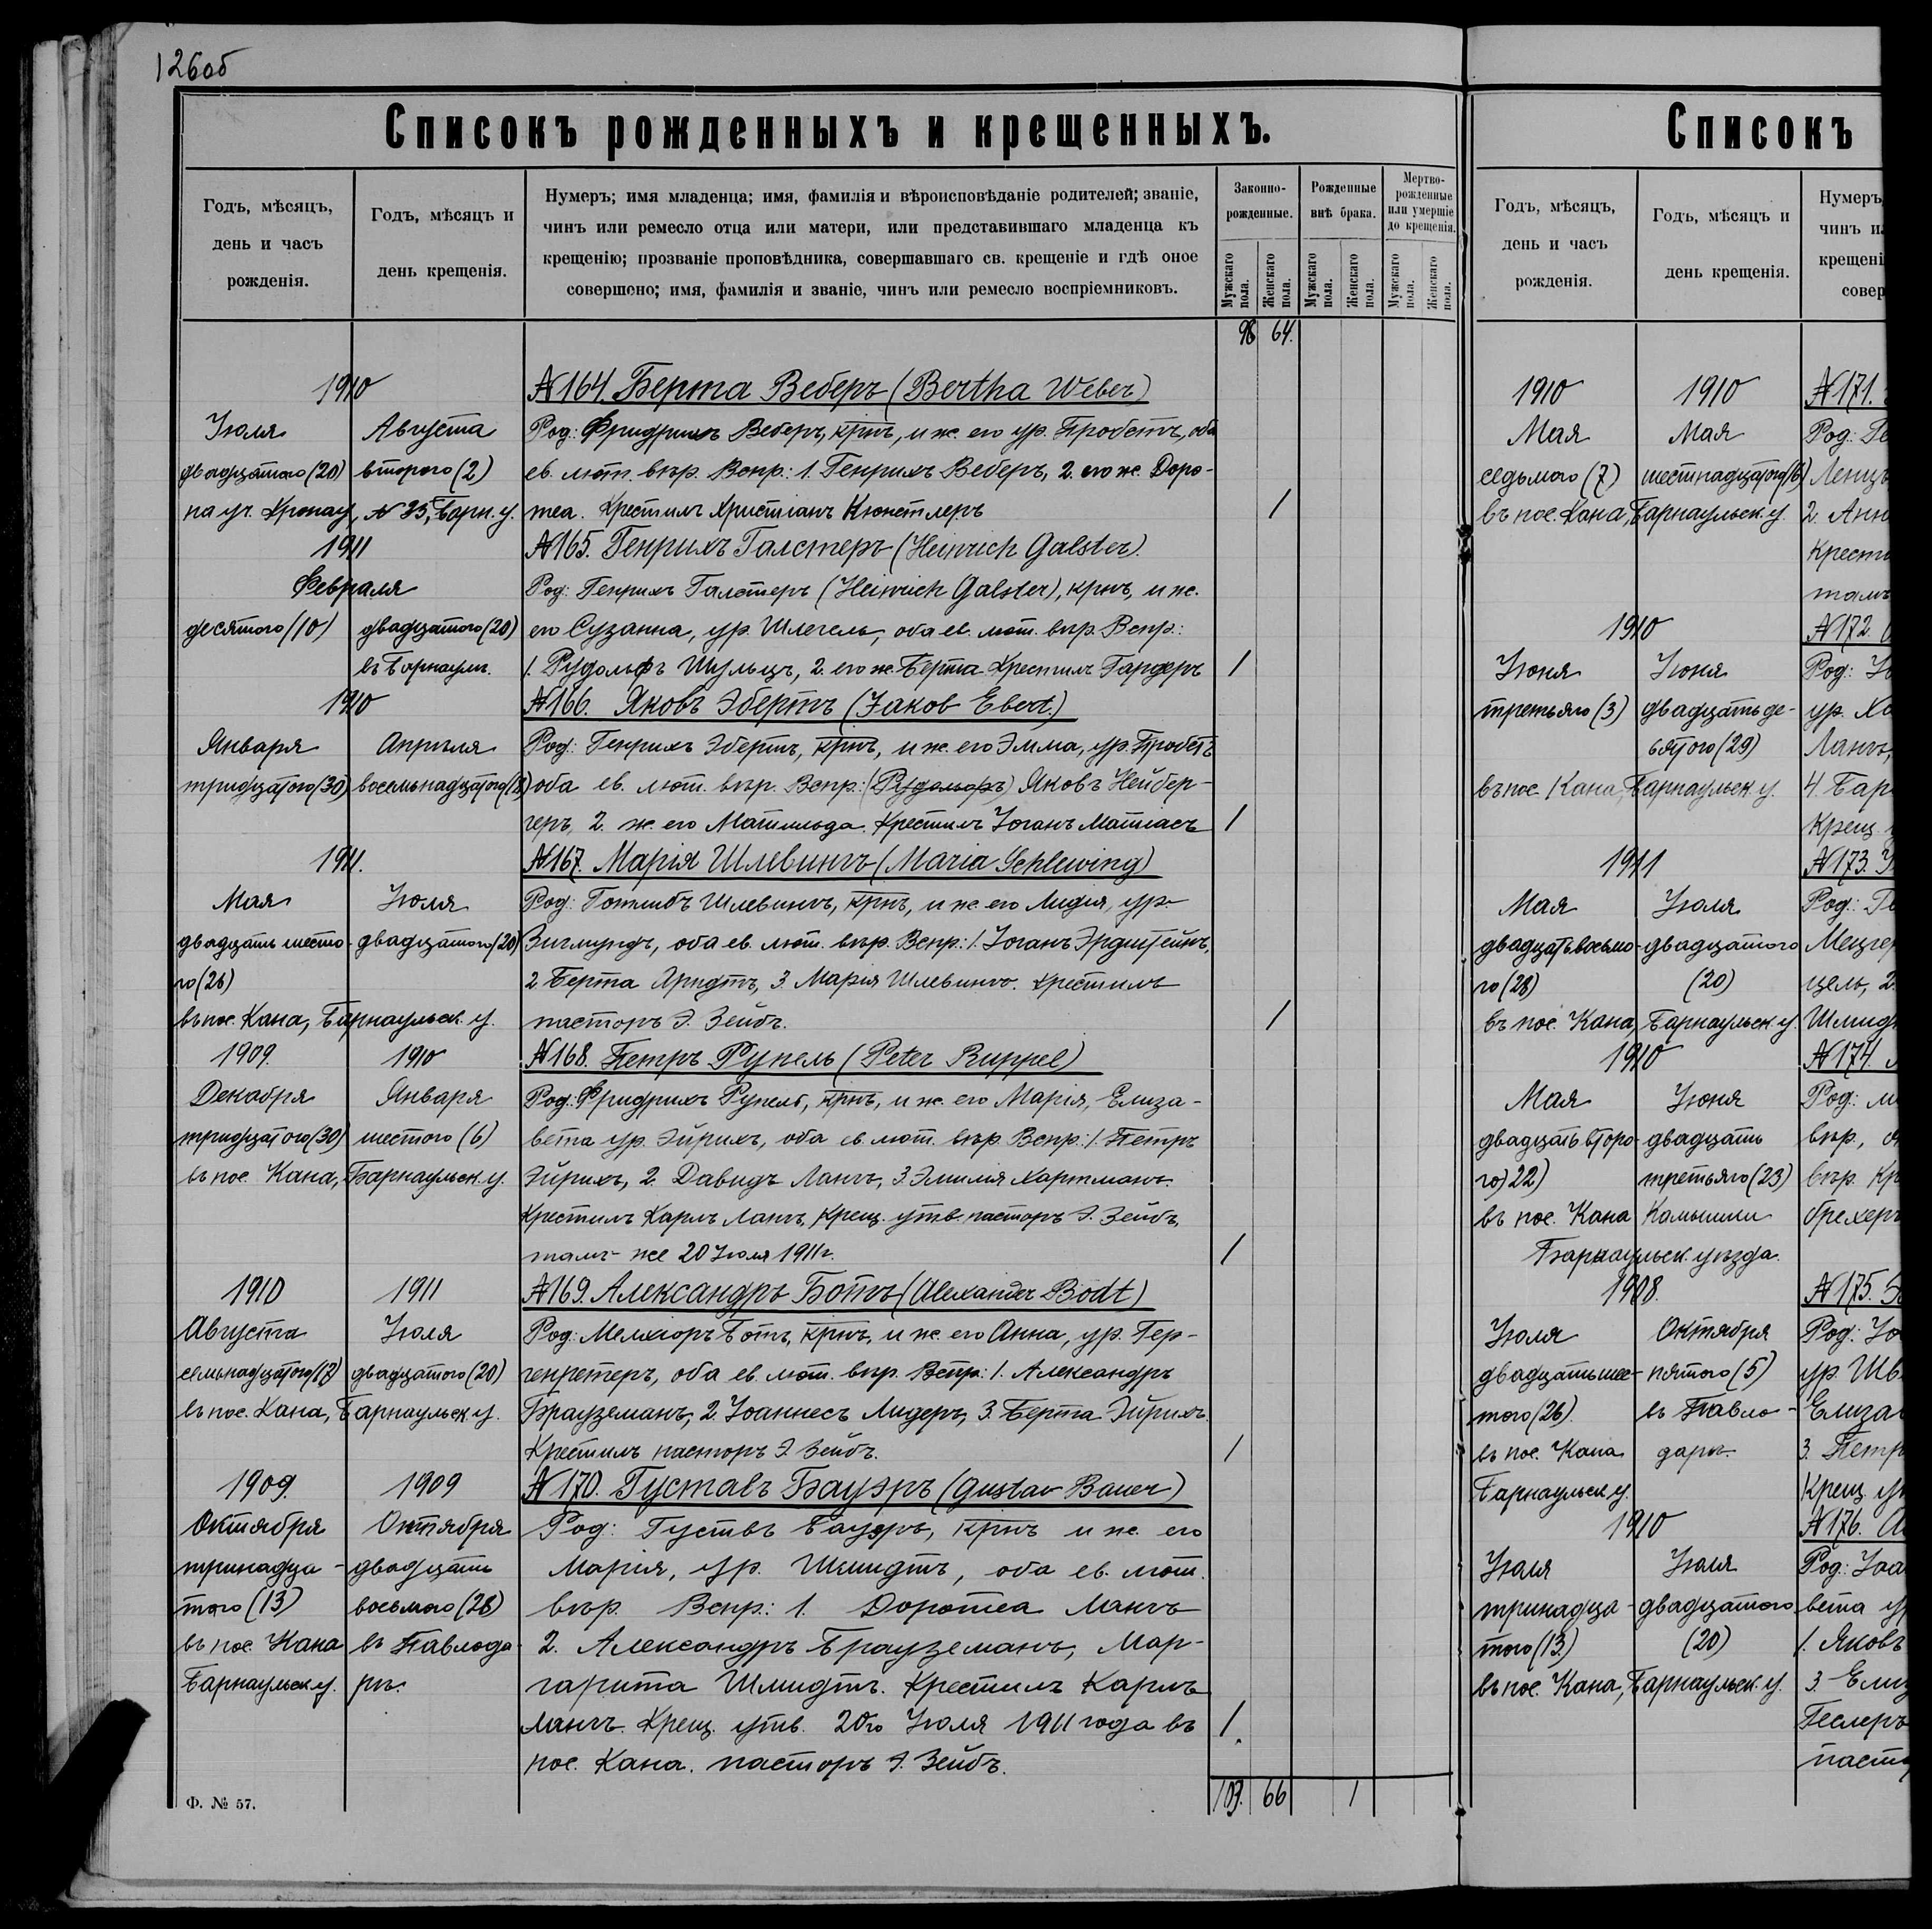 126об
Списокъ рожденныхъ и крещенныхъ.
Годъ, мѣсяцъ,
день и часъ
рожденія.
Годъ, мѣсяцъ и
день крещенія.
Нумеръ; имя младенца; имя, фамилія и вѣроисповѣданіе родителей; званіе,
чинъ или ремесло отца или матери, или представившаго младенца къ
крещенію; прозваніе проповѣдника, совершавшаго св. крещеніе и гдѣ оное
совершено; имя, фамилія и званіе, чинъ или ремесло воспріемниковъ.
Законно-
рожденные.
Рожденные
внѣ брака.
Мертво-
рожденные
или умершіе
до крещенія.
Мужскаго пола.
Женскаго пола.
Мужскаго пола.
Женскаго пола.
Мужскаго пола.
Женскаго пола.
98 64.
1910
№164. Берта Веберъ (Bertha Weber)
Іюля Августа Род: Фридрихъ Веберъ, крнъ, и ж. его ур. Пробстъ, оба
двадцатого (20) второго (2) ев. лют. вѣр. Вспр.: 1. Генрихъ Веберъ, 2. его ж. Доро-
на уч. Кронау, №35, Барн. у. теа. Крестилъ Христіанъ Кюнстлеръ 1
1911
№165. Генрихъ Галстеръ (Heinrich Galster).
Февраля Род: Генрихъ Галстеръ (Heinrich Galster), крнъ, и ж.
десятого (10) двадцатого (20) его Сузанна, ур. Шлегель, оба ев. лют. вѣр. Вспр.:
въ Барнаулѣ. 1. Рудольфъ Шульцъ, 2. его ж. Берта. Крестилъ Гардеръ 1
1910
№166. Яковъ Эбертъ (Jakob Ebert.)
Января Апрѣля Род: Генрихъ Эбертъ, крнъ, и ж. его Эмма, ур. Пробстъ
тридцатого (30) восемьнадцатого (18) оба ев. лют. вѣр. Вспр.: (Рудольфъ) Яковъ Нейбер-
геръ, 2. ж. его Матильда. Крестилъ Іоганъ Матіасъ 1
1911.
№167. Марія Шлевингъ (Maria Schlewing)
Мая Іюля Род: Готлибъ Шлевингъ, крнъ, и ж. его Лидія, ур-
двадцать шесто- двадцатого (20) Зигмундъ, оба ев. лют. вѣр. Вспр.: 1. Іоганъ Эрдштейнъ,
го (26) 2 Берта Арндтъ, 3. Марія Шлевингъ. Крестилъ
въ пос. Кана, Барнаульск. у. пасторъ Э. Зейбъ. 1
1909. 1910 №168. Петръ Рупель (Peter Ruppel)
Декабря Января Род: Фридрихъ Рупель, крнъ, и ж. его Марія, Елиза-
тридцатого (30) шестого (6) вета ур. Эйрихъ, оба ев. лют. вѣр. Вспр.: 1. Петръ
въ пос. Кана, Барнаульск. у. Эйрихъ, 2. Давидъ Лангъ, 3. Эмилія Хартманъ.
Крестилъ Карлъ Лангъ, крещ. утв. пасторъ Э. Зейбъ,
тамъ-же 20 Іюля 1911 г. 1
1910 1911 №169. Александръ Ботъ (Alexander Bodt)
Августа Іюля Род: Мелхіоръ Ботъ, крнъ, и ж. его Анна, ур. Гер-
семьнадцатого (17) двадцатого (20) генретеръ, оба ев. лют. вѣр. Вспр.: 1. Александръ
въ пос. Кана, Барнаульск. у. Брауземанъ, 2. Іоаннесъ Лидеръ, 3. Берта Эйрихъ.
Крестилъ пасторъ Э. Зейбъ. 1
1909. 1909 №170. Густавъ Бауэръ (Gustav Bauer)
Октября Октября Род: Густвъ Бауэръ, крнъ и ж. его
тринадца- двадцать Марія, ур. Шмидтъ, оба ев. лют.
того (13) восьмого (28) вѣр. Вспр.: 1. Доротеа Лангъ
въ пос. Кана въ Павлода- 2. Александръ Брауземанъ, Мар-
Барнаульск. у. рѣ. гарита Шмидтъ. Крестилъ Карлъ
Лангъ. Крещ. утв. 20го Іюля 1911 года въ 1.
пос. Кана. пасторъ Э. Зейбъ.
103. 66 1
Ф. № 57.
Списокъ
Годъ, мѣсяцъ,
день и часъ
рожденія.
Годъ, мѣсяцъ и
день крещенія.
Нумеръ,
чинъ и
крещені
совер
1910 1910 №171.
Мая Мая Род:
седьмого (7) шестнадцатого (16) Ленцъ
въ пос. Кана, Барнаульск. у. 2. Анн
Крести
тамъ
1910 №172.
Іюня Іюня Род:
третьяго (3) двадцать де- ур.
вятого (29) Лангъ,
въ пос. Кана, Барнаульск. у. 4. Бар
Крещ.
1911 №173.
Мая Іюля Род:
двадцать восьмо- двадцатого Мецгер
го (28) (20) цель, 2.
въ пос. Кана, Барнаульск. у. Шмид
1910 №174.
Мая Іюня Род:
двадцать второ- двадцать вѣр.,
го) 22) третьяго (23) вѣр. Кр
въ пос. Кана Камышли брехеръ
Барнаульск. уѣзда.
1908. №175.
Іюля Октября Род:
двадцать шес- пятого (5) ур. Шв
того (26). въ Павло- Елиза
въ пос. Кана дарѣ. 3. Петр
Барнаульск у. Крещ. ут
1910 №176.
Іюля Іюля Род:
тринадца- двадцатого вета ур
того (13.) (20) 1. Яковъ
въ пос. Кана, Барнаульск. у. 3. Ели
Геслеръ
паст